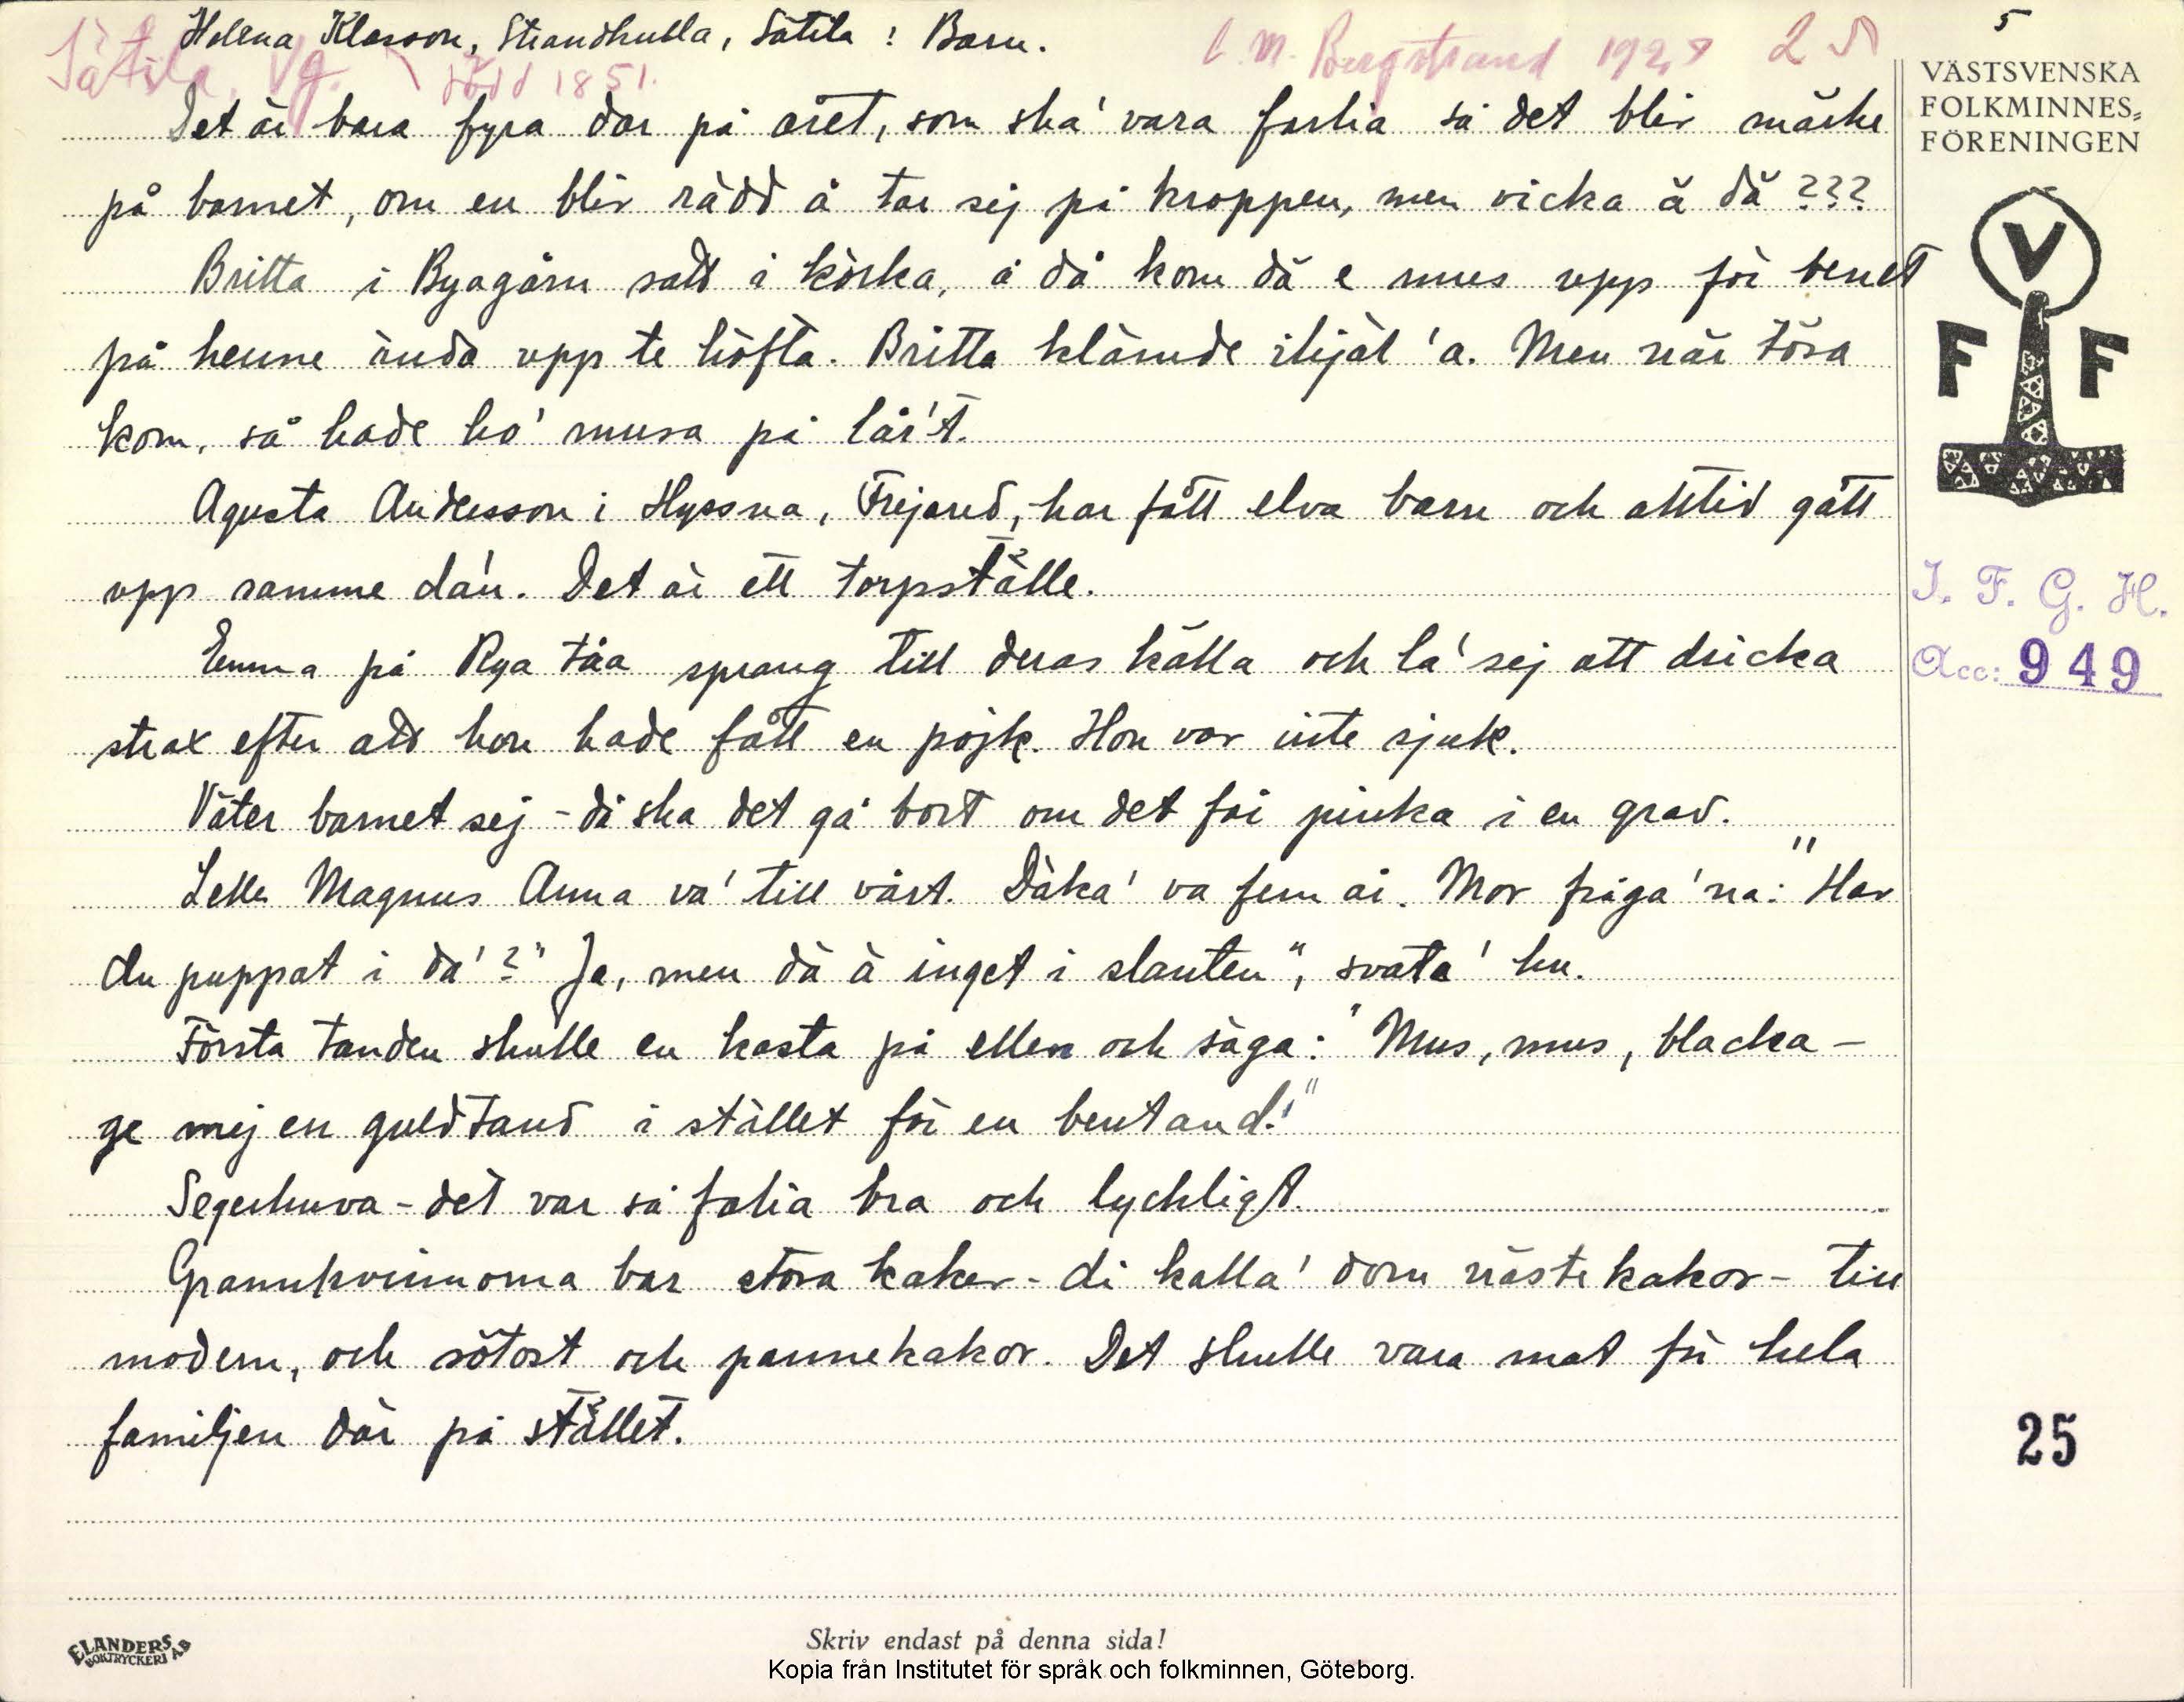 5
Helena Klasson, Strandkulla, Sätila: Barn.
Sätila, Vg. född 1851. C. M. Bergstrand 1928
VÄSTSVENSKA
FOLKMINNES=
FÖRENINGEN
V
F F
I. F. G. H.
Acc: 949
Det är bara fyra dar på året, som ska' vara farlia så det blir märke
på barnet, om en blir rädd å tar sej på kroppen, men vicka ä dä ???
Britta i Byagårn satt i körka, å då kom dä e mus upp för benet
på henne ända upp te höfta. Britta klämde ihjäl 'a. Men när tösa
kom, så hade ho' musa på lår't.
Agusta Andersson i Hyssna, Frejared, har fått elva barn och alltid gått
upp samme da'n. Det är ett torpställe.
Emma på Rya tåa sprang till deras källa och la' sej att dricka
strax efter att hon hade fått en pojk. Hon var inte sjuk.
Väter barnet sej - då ska det gå bort om det får pinka i en grav.
Lelle Magnus Anna va' till vårt. Däka' va fem år. Mor fråga 'na: "Har
du puppat i da'?" Ja, men dä ä inget i slanten", svata' hu.
Första tanden skulle en kasta på ellen och säga: "Mus, mus, blacka -
ge mej en guldtand i stället för en bentand!"
Segerhuva - det var så falia bra och lyckligt.
Grannkvinnorna bar stora kaker - di kalla' dom nästekakor - till
modern, och sötost och pannekakor. Det skulle vara mat för hela
familjen där på stället.
25
ELANDERS
BOKTRYCKERI AB
Skriv endast på denna sida!
Kopia från Institutet för språk och folkminnen, Göteborg.